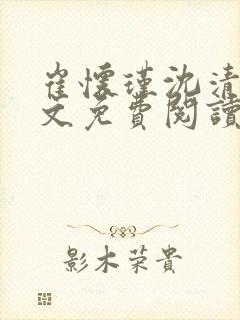 崔懷瑾沈清
文免費閱讀
影木荣貴